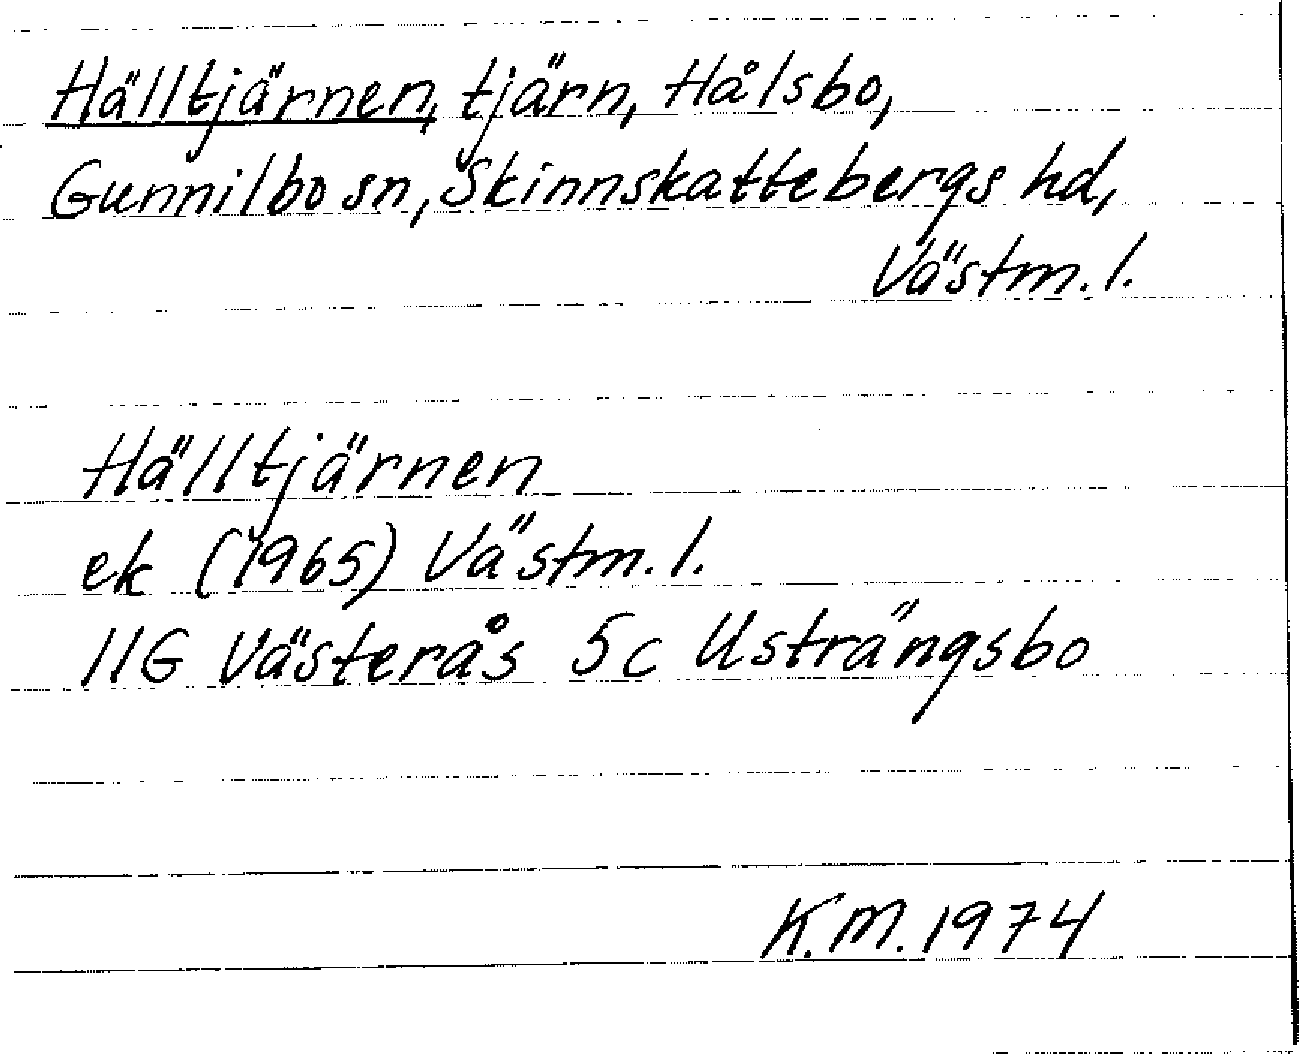 Hälltjärnen, tjärn, Hålsbo,
Gunnilbo sn, Skinnskattebergs hd,
Västm. l.
Hälltjärnen
ek (1965) Västm. l.
11G Västerås 5c Usträngsbo
K.M. 1974